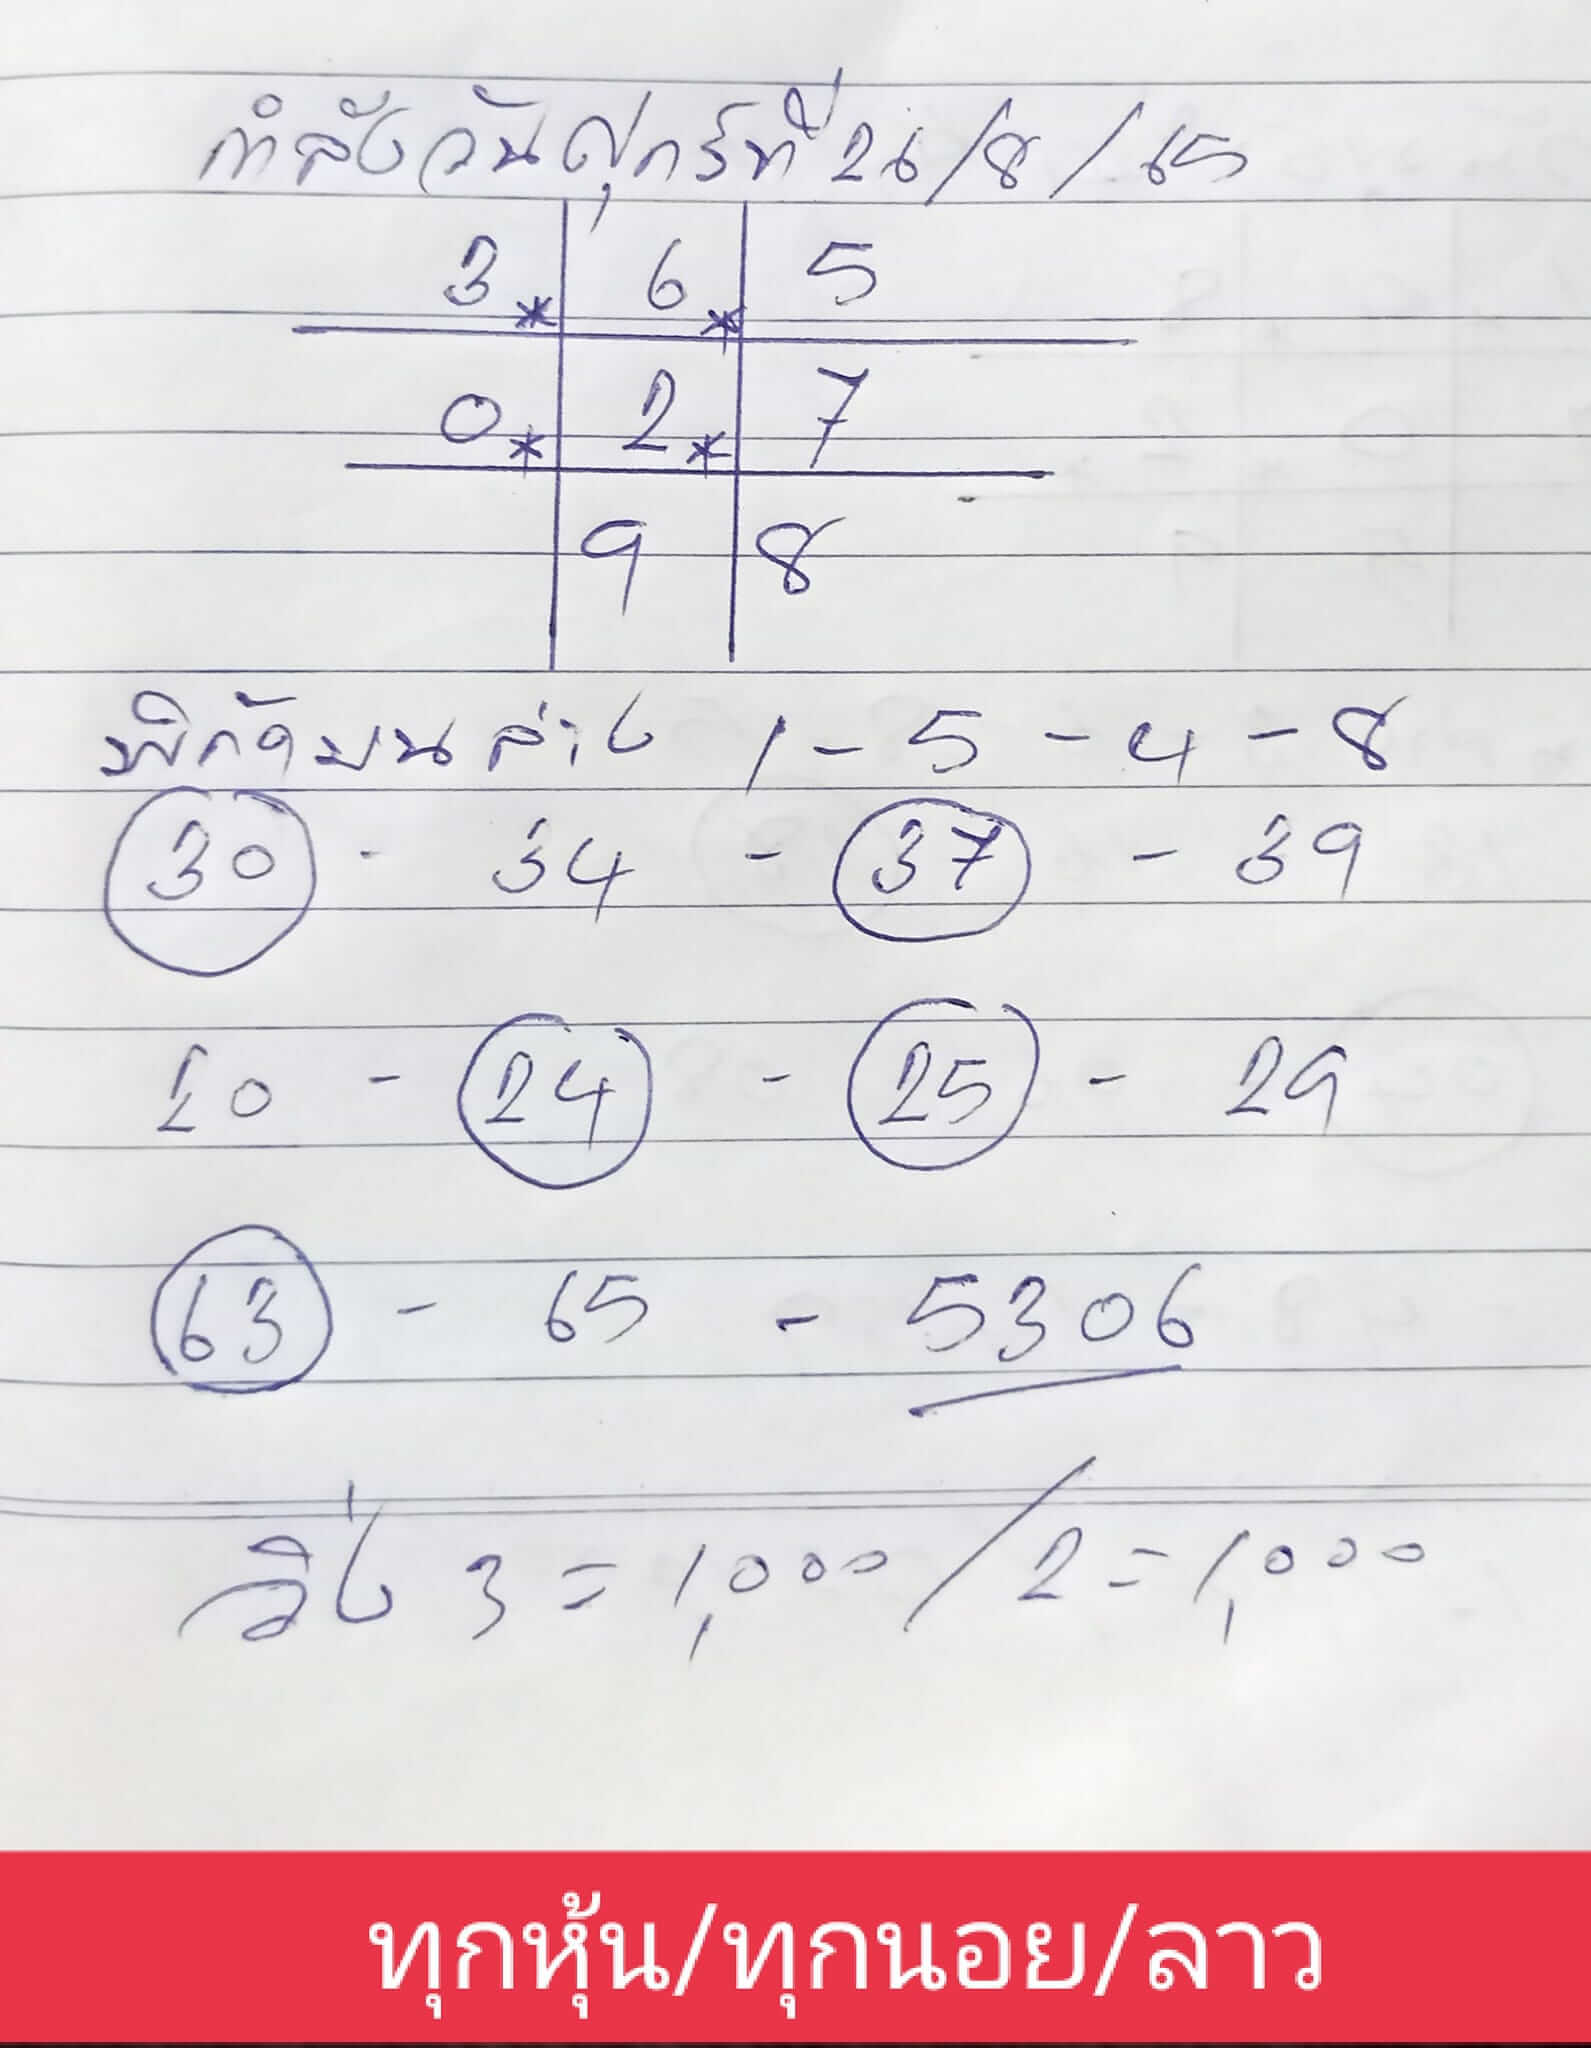 กำลังวันศุกร์ที่ 26/8/65
3* 6* 5
0* 2* 7
9 8
พิกัดบนล่าง 1-5-4-8
30 - 34 - 37 - 39
20 - 24 - 25 - 29
63 - 65 - 5306
วิ่ง 3 = 1,000 / 2 = 1,000
ทุกหุ้น/ทุกนอย/ลาว